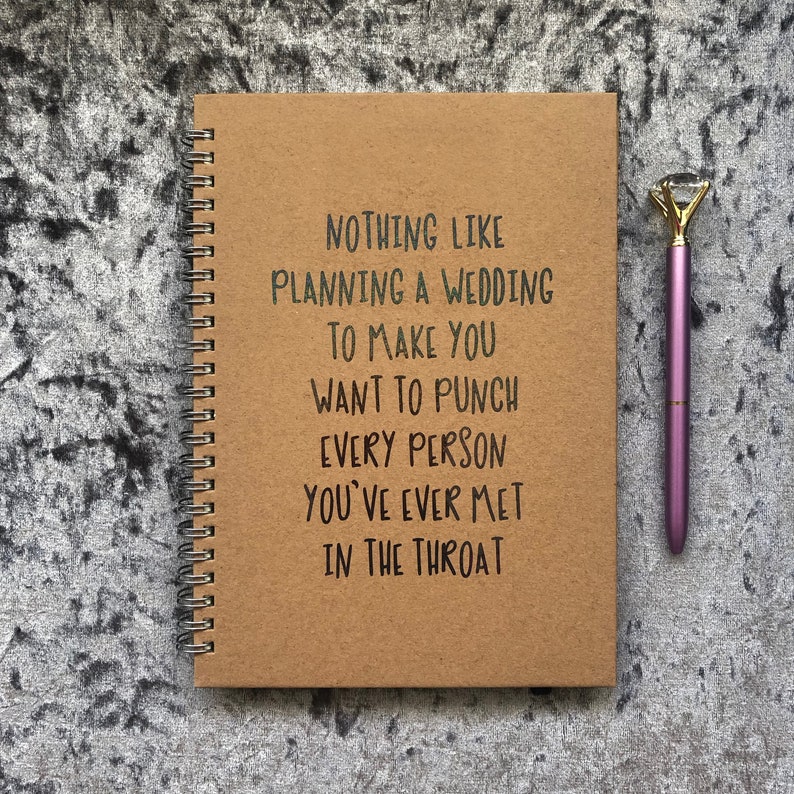 NOTHING LIKE
PLANNING A WEDDING
TO MAKE YOU
WANT TO PUNCH
EVERY PERSON
YOU'VE EVER MET
IN THE THROAT